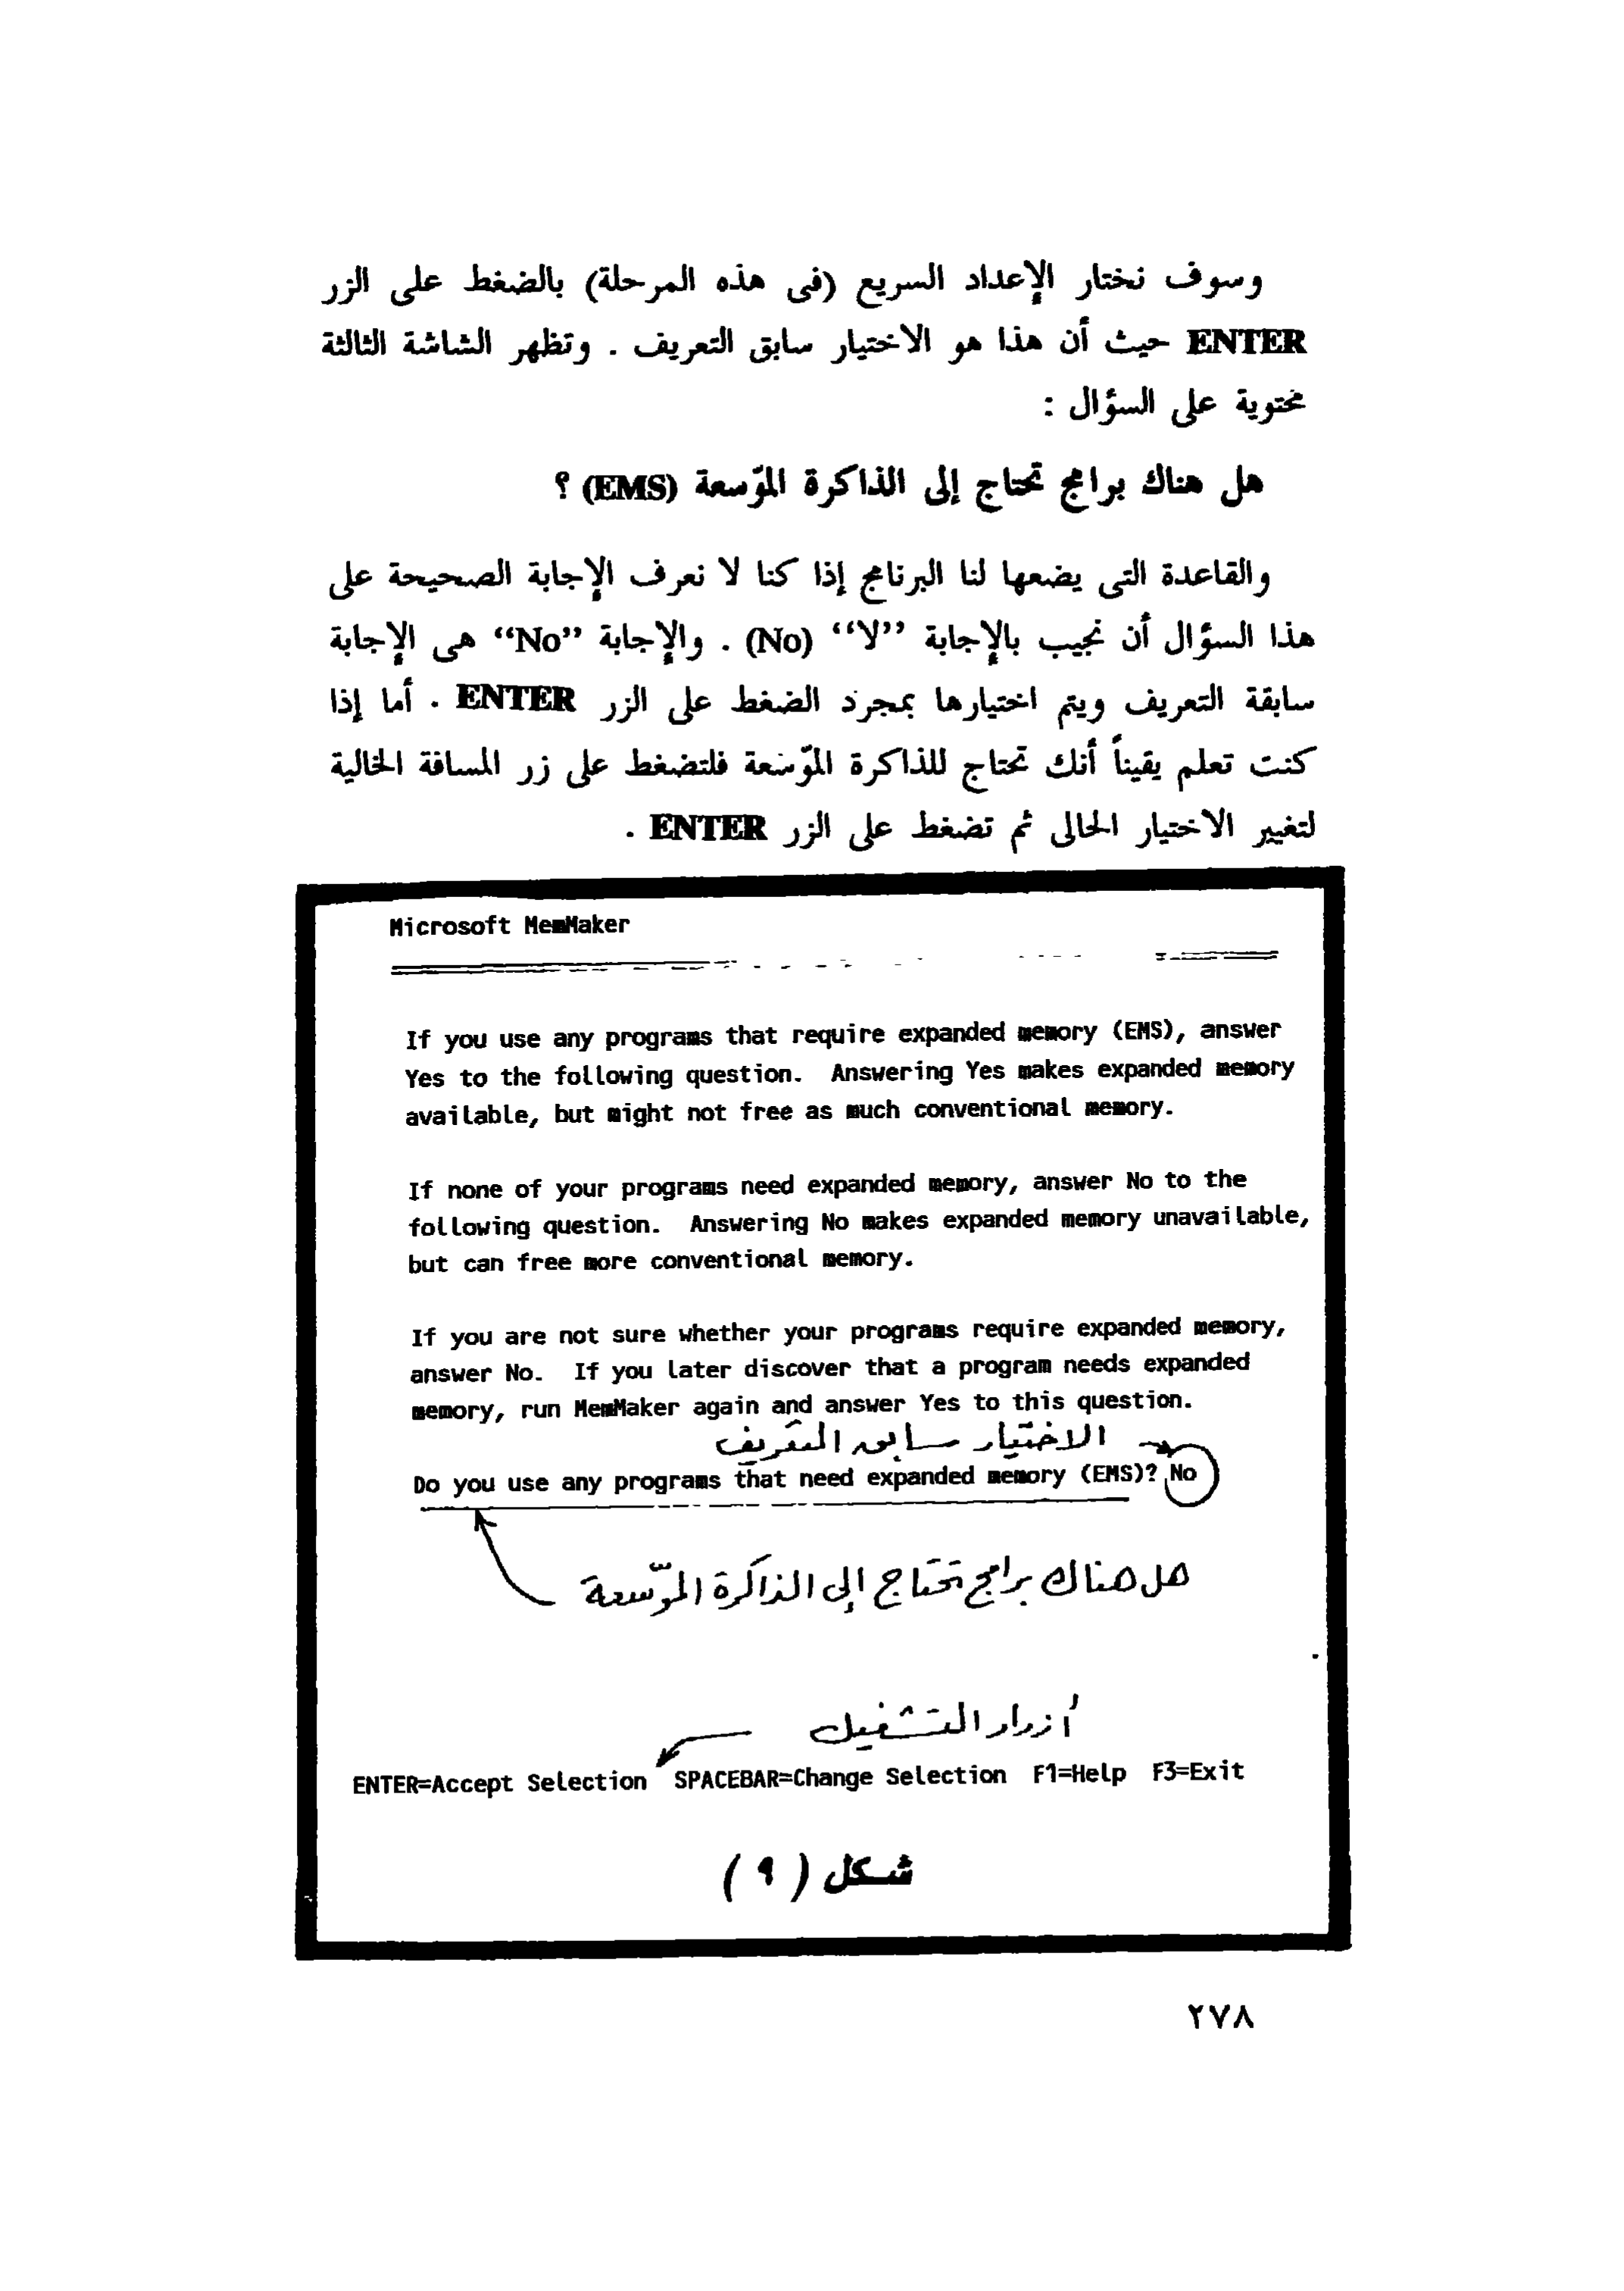 وسوف نختار الإعداد السريع (فى هذه المرحلة) بالضغط على الزر
ENTER حيث أن هذا هو الاختيار سابق التعريف . وتظهر الشاشة الثالثة
محتوية على السؤال :
هل هناك برامج تحتاج إلى الذاكرة الموّسعة (EMS) ؟
والقاعدة التى يضعها لنا البرنامج إذا كنا لا نعرف الإجابة الصحيحة على
هذا السؤال أن نجيب بالإجابة ”لا“ (No) . والإجابة “No” هى الإجابة
سابقة التعريف ويتم اختيارها بمجرد الضغط على الزر ENTER . أما إذا
كنت تعلم يقيناً أنك تحتاج للذاكرة الموّسعة فلتضغط على زر المسافة الخالية
لتغيير الاختيار الحالى ثم تضغط على الزر ENTER .
Microsoft MemMaker
If you use any programs that require expanded memory (EMS), answer
Yes to the following question. Answering Yes makes expanded memory
available, but might not free as much conventional memory.
If none of your programs need expanded memory, answer No to the
following question. Answering No makes expanded memory unavailable,
but can free more conventional memory.
If you are not sure whether your programs require expanded memory,
answer No. If you later discover that a program needs expanded
memory, run MemMaker again and answer Yes to this question.
الاختيار سابق التعريف
Do you use any programs that need expanded memory (EMS)? No
هل هناك برامج تحتاج إلى الذاكرة الموّسعة
أزرار التشغيل
ENTER=Accept Selection SPACEBAR=Change Selection F1=Help F3=Exit
شكل (٩)
٢٧٨